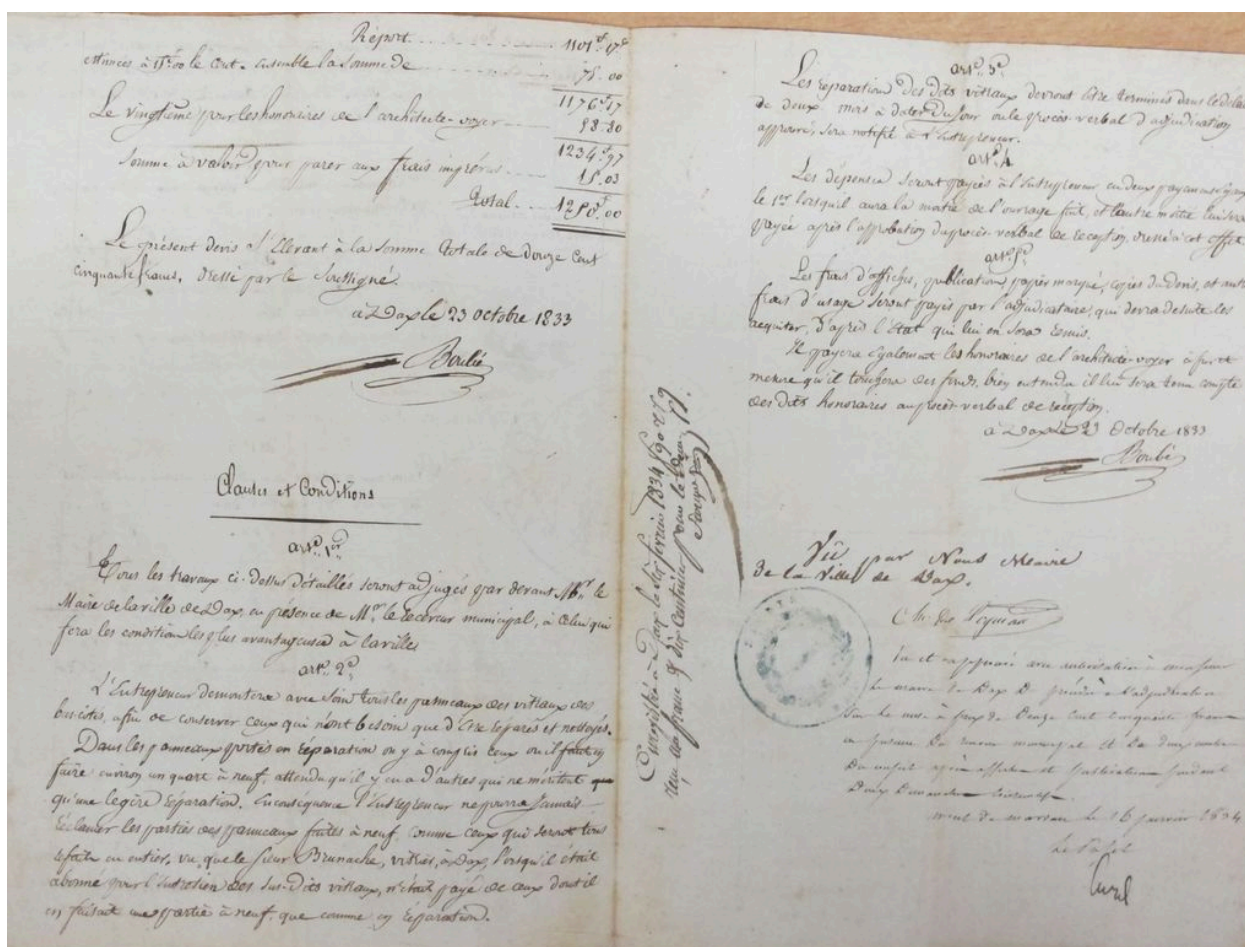 Réport 1101f 17c
à 15f 00 le cent. Ensemble la Somme de 75.00
1176f 17
Le vingtième pour les honoraires de l'architecte-voyer 58-80
1234f 97
Somme à valoir pour parer aux frais imprévus 15.03
Total 1250f 00
Le présent devis s'Elevant à la Somme totale de douze cent
cinquante francs, dressé par le Soussigné.
à Dax le 23 octobre 1833
Boulié
Clauses et Conditions
art. 1er
Tous les travaux ci-dessus détaillés seront adjugés par devant Mr. le
Maire de la ville de Dax, en présence de Mr. le Receveur municipal, à Celui qui
fera les condition les plus avantageuses à la ville
art. 2e
L'Entrepreneur demontera avec soin tous les panneaux des vitraux des
bas cotés, afin de conserver ceux qui n'ont besoin que d'Etre réparés et nettoyés.
Dans les panneaux portés en réparation on y à compris ceux ou il faut en
faire environ un quart à neuf, attendu qu'il y en a d'autres qui ne méritent
qu'une legère réparation. En conséquence l'Entrepreneur ne pourra Jamais
réclamer les parties des panneaux faites à neuf comme ceux qui seront tous
en entier, vu que le Sieur Brunache, vitrier, à Dax, lorsqu'il était
abonné pour l'Entretien des Sus-Dits vitraux, n'était payé de ceux dont il
en faisait une partie à neuf que comme en réparation.
Enregistré à Dax le février 1834 fo 90
reçu un franc & dix Centimes pour le
art. 3e
Les réparation des dits vitraux devront Etre terminés dans le délai
de deux mois à dater du Jour ou le procès-verbal d'adjudication
approuvé, sera notifié à l'Entrepreneur.
art. 4
Les dépenses seront payées à l'Entrepreneur en deux payemens Egaux
le 1er lorsqu'il aura la moitié de l'ouvrage fait, et l'autre moitié lui sera
payée après l'approbation du procès-verbal de réception, dressé à cet effet.
art. 5e
Les frais d'affiches, publication, papier marqué, copies du devis, et autres
frais d'usage seront payés par l'adjudicataire, qui devra de suite les
acquiter, d'après l'Etat qui lui en sera remis.
Il payera Egalement les honoraires de l'architecte-voyer à fur et
mesure qu'il touchera des fonds, bien entendu il lui sera tenu compte
des dits honoraires au procès-verbal de réception.
à Dax le 23 Octobre 1833
Boulié
Vû par Nous Maire
De la Ville de Dax.
Vu et approuvé avec autorisation à monsieur
le maire de Dax de procéder à l'adjudication
sur la mise à prix de Douze Cent Cinquante francs
en présence du receveur municipal et de deux membres
du conseil après affiches et publications pendant
Deux Dimanches
mont de marsan le 16 janvier 1834
Le Préfet